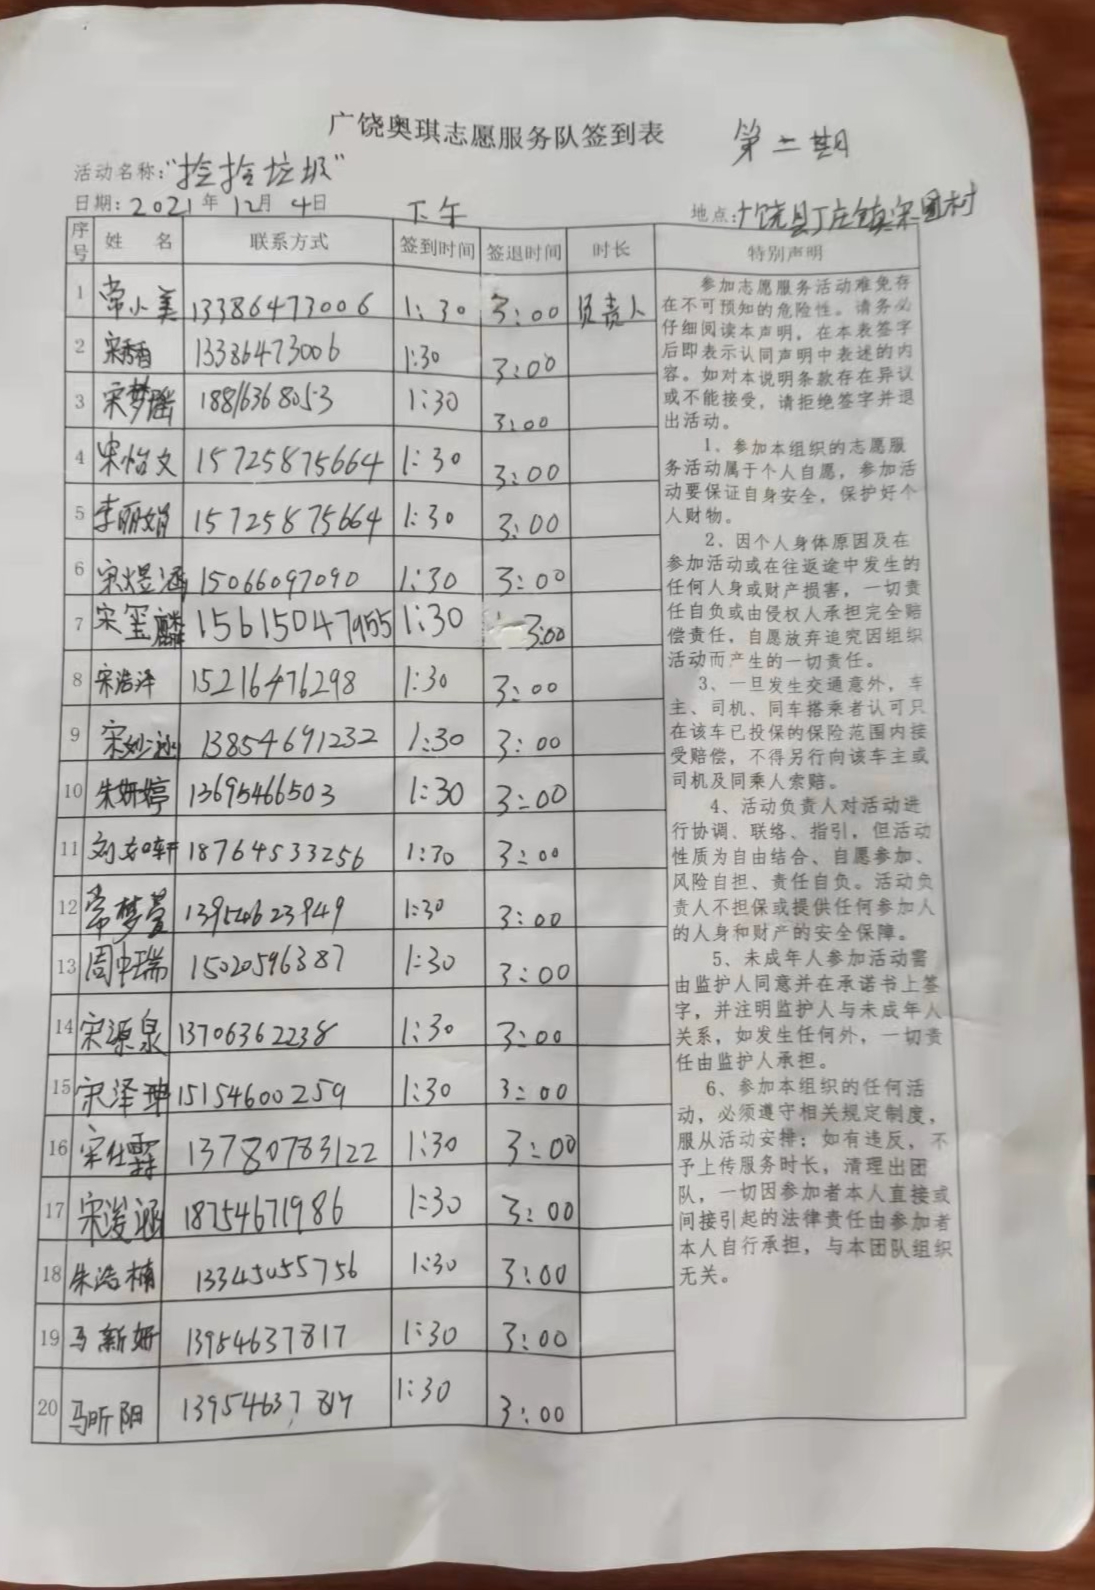 广饶奥琪志愿服务队签到表
第二期
活动名称:"捡捡垃圾"
日期:2021年12月4日
下午
地点:广饶县丁庄镇宋圈村
序号 姓 名 联系方式 签到时间 签退时间 时长 特别声明
1 常小美 13386473006 1:30 3:00 负责人
2 宋秀香 13386473006 1:30 3:00
3 宋梦瑶 18816368053 1:30 3:00
4 宋怡文 15725875664 1:30 3:00
5 李丽娟 15725875664 1:30 3:00
6 宋煜涵 15066097090 1:30 3:00
7 宋玺麟 15615047955 1:30 3:00
8 宋浩泽 15216476298 1:30 3:00
9 宋妙涵 13854691232 1:30 3:00
10 朱妍婷 13695466503 1:30 3:00
11 刘 轩 18764533256 1:30 3:00
12 常梦萱 13954623949 1:30 3:00
13 周中瑞 15020596387 1:30 3:00
14 宋源泉 13706362238 1:30 3:00
15 宋泽 15154600259 1:30 3:00
16 宋仕霖 13780783122 1:30 3:00
17 宋浚涵 18754671986 1:30 3:00
18 朱浩楠 13345055756 1:30 3:00
19 马新妍 13954637817 1:30 3:00
20 马昕阳 13954637817 1:30 3:00
参加志愿服务活动难免存
在不可预知的危险性。请务必
仔细阅读本声明,在本表签字
后即表示认同声明中表述的内
容。如对本说明条款存在异议
或不能接受,请拒绝签字并退
出活动。
1、参加本组织的志愿服
务活动属于个人自愿,参加活
动要保证自身安全,保护好个
人财物。
2、因个人身体原因及在
参加活动或在往返途中发生的
任何人身或财产损害,一切责
任自负或由侵权人承担完全赔
偿责任,自愿放弃追究因组织
活动而产生的一切责任。
3、一旦发生交通意外,车
主、司机、同车搭乘者认可只
在该车已投保的保险范围内接
受赔偿,不得另行向该车主或
司机及同乘人索赔。
4、活动负责人对活动进
行协调、联络、指引,但活动
性质为自由结合、自愿参加、
风险自担、责任自负。活动负
责人不担保或提供任何参加人
的人身和财产的安全保障。
5、未成年人参加活动需
由监护人同意并在承诺书上签
字,并注明监护人与未成年人
关系,如发生任何外,一切责
任由监护人承担。
6、参加本组织的任何活
动,必须遵守相关规定制度,
服从活动安排;如有违反,不
予上传服务时长,清理出团
队,一切因参加者本人直接或
间接引起的法律责任由参加者
本人自行承担,与本团队组织
无关。